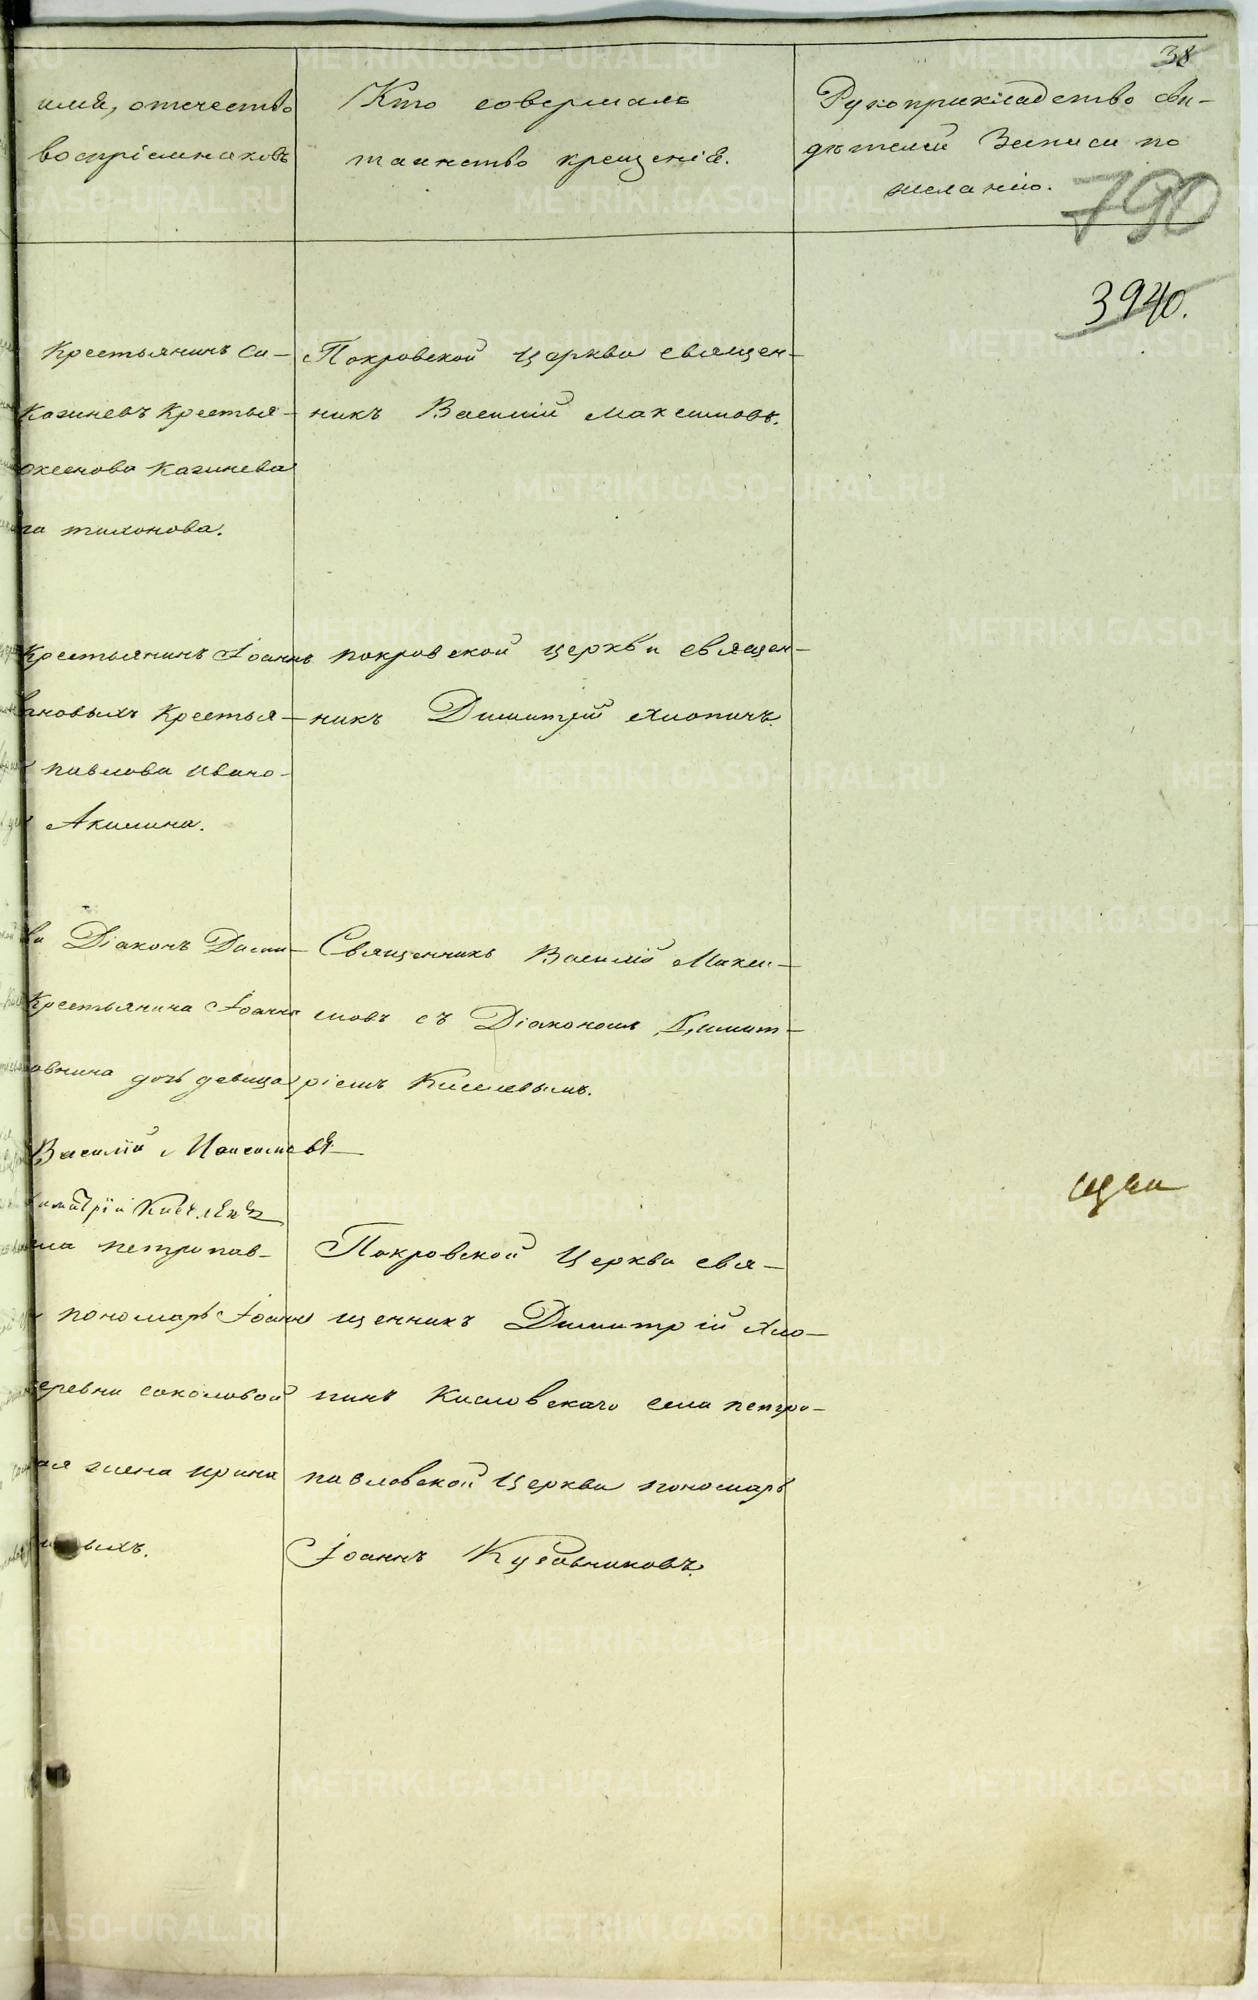 38
имя, отчество
воспріемниковъ
Кто совершалъ
таинство крещенія.
Рукоприкладство сви-
дѣтелей Записи по
желанію.
790
3940.
Крестьянинъ Си-
Кагиневъ Крестья-
Кагинева
тихонова.
Покровской Церкви священ-
никъ Василій Максимовъ.
Крестьянинъ Іоаннъ
ановыхъ Крестья-
павлова ивано-
Акилина.
покровской церкви священ-
никъ Димитрій Хлопинъ.
Діаконъ Дими-
Крестьянина Іоанна
овнина дочь девица
Василій Максимовъ
Димитрій Киселевъ
Священникъ Василій Макси-
мовъ съ Діакономъ Димит-
ріемъ Киселевымъ.
ла петропав-
пономарь Іоаннъ
деревни соколовой
жена ирина
выхъ.
Покровской Церкви свя-
щенникъ Димитрій Хло-
пинъ Кисловскаго села петро-
павловской Церкви пономарь
Іоаннъ
METRIKI.GASO-URAL.RU